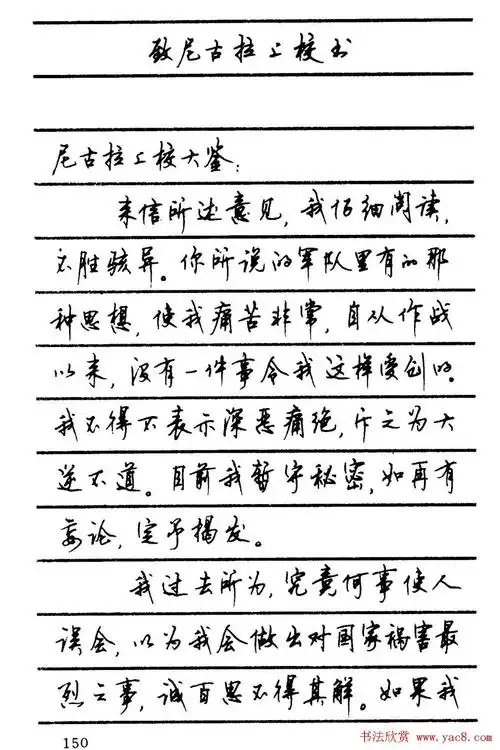 致尼古拉上校书
尼古拉上校大鉴:
来信所述意见,我仔细阅读,
不胜骇异。你所说的军队里有的那
种思想,使我痛苦非常,自从作战
以来,没有一件事令我这样受创的。
我不得不表示深恶痛绝,斥之为大
逆不道。目前我暂守秘密,如再有
妄论,定予揭发。
我过去所为,究竟何事使人
误会,以为我会做出对国家祸害最
烈之事,诚百思不得其解。如果我
150
书法欣赏 www.yac8.com